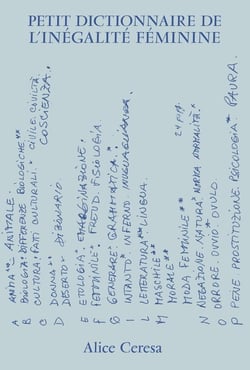 PETIT DICTIONNAIRE DE
L'INÉGALITÉ FÉMININE
A ANIMA** ANIMALE
B BIOLOGIA* DIFFERENZE BIOLOGICHE**
C CULTURA* FATTI CULTURALI.* CIVILE CIVILTÀ.
COSCIENZA.*
D DONNA** DIZIONARIO
DESERTO*
E ETOLOGIA*
F FEMMINILE* FREUD FISIOLOGIA
G GENERARE* GRAMMATICA.*
I INFERNO INUGUAGLIANZA.
L LETTERATURA** LINGUA.
M MASCHILE**
MORALE**
MODA FEMMINILE**
N NEGAZIONE NATURA* NORMA NORMALITÀ*
O ORRORE. OVVIO* OVULO
P PENE PROSTITUZIONE. PSICOLOGIA* PAURA.
Alice Ceresa